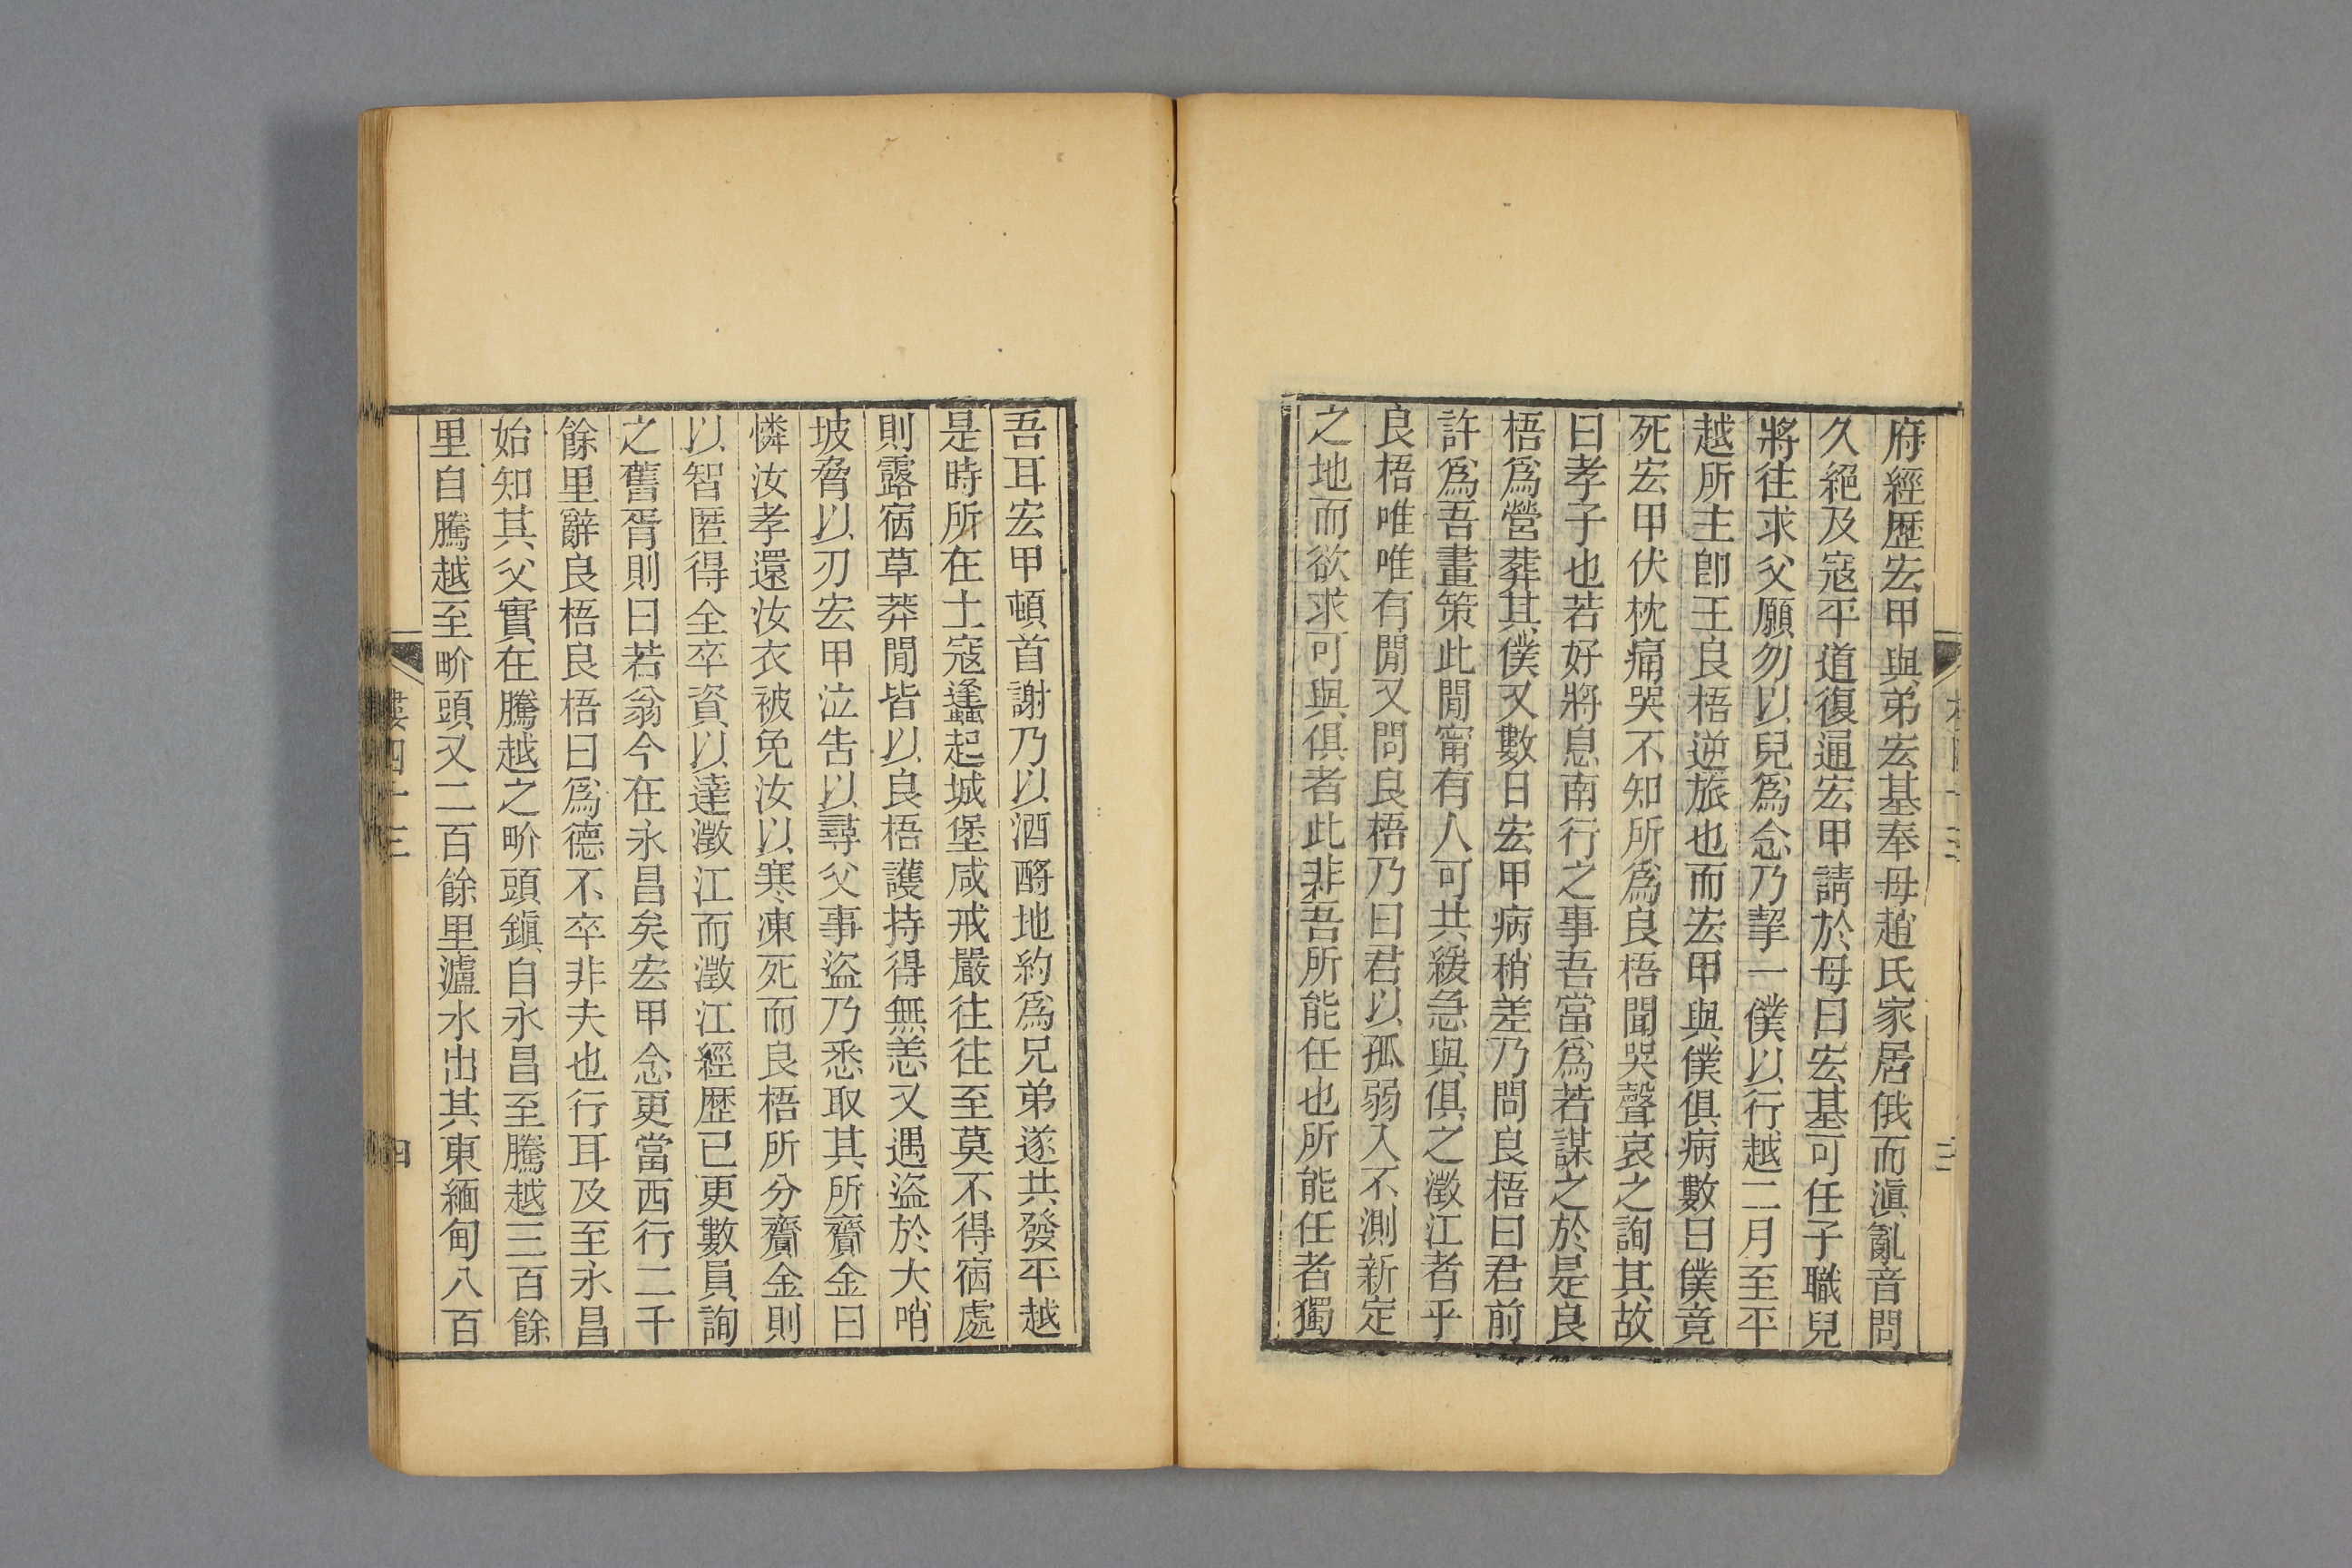 府經歷宏甲與弟宏基奉母趙氏家居俄而滇亂音問
久絕及寇平道復通宏甲請於母曰宏基可任子職兒
將往求父願勿以兒爲念乃挈一僕以行越二月至平
越所主卽王良梧逆旅也而宏甲與僕俱病數日僕竟
死宏甲伏枕痛哭不知所爲良梧聞哭聲哀之詢其故
曰孝子也若好將息南行之事吾當爲若謀之於是良
梧爲營葬其僕又數日宏甲病稍差乃問良梧曰君前
許爲吾畫策此閒甯有人可共緩急與俱之澂江者乎
良梧唯唯有閒又問良梧乃曰君以孤弱入不測新定
之地而欲求可與俱者此非吾所能任也所能任者獨
吾耳宏甲頓首謝乃以酒酹地約爲兄弟遂共發平越
是時所在土寇蠭起城堡咸戒嚴往往至莫不得宿處
則露宿草莽閒皆以良梧護持得無恙又遇盜於大哨
坡脅以刃宏甲泣告以尋父事盜乃悉取其所齎金曰
憐汝孝還汝衣被免汝以寒凍死而良梧所分齎金則
以智匿得全卒資以達澂江而澂江經歷已更數員詢
之舊胥則曰若翁今在永昌矣宏甲念更當西行二千
餘里辭良梧良梧曰爲德不卒非夫也行耳及至永昌
始知其父實在騰越之畍頭鎭自永昌至騰越三百餘
里自騰越至畍頭又二百餘里瀘水出其東緬甸八百
四十三
四